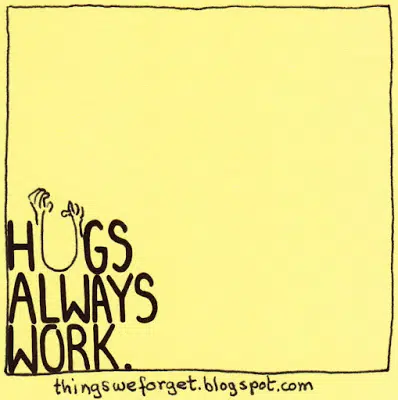 HUGS
ALWAYS
WORK.
thingsweforget.blogspot.com